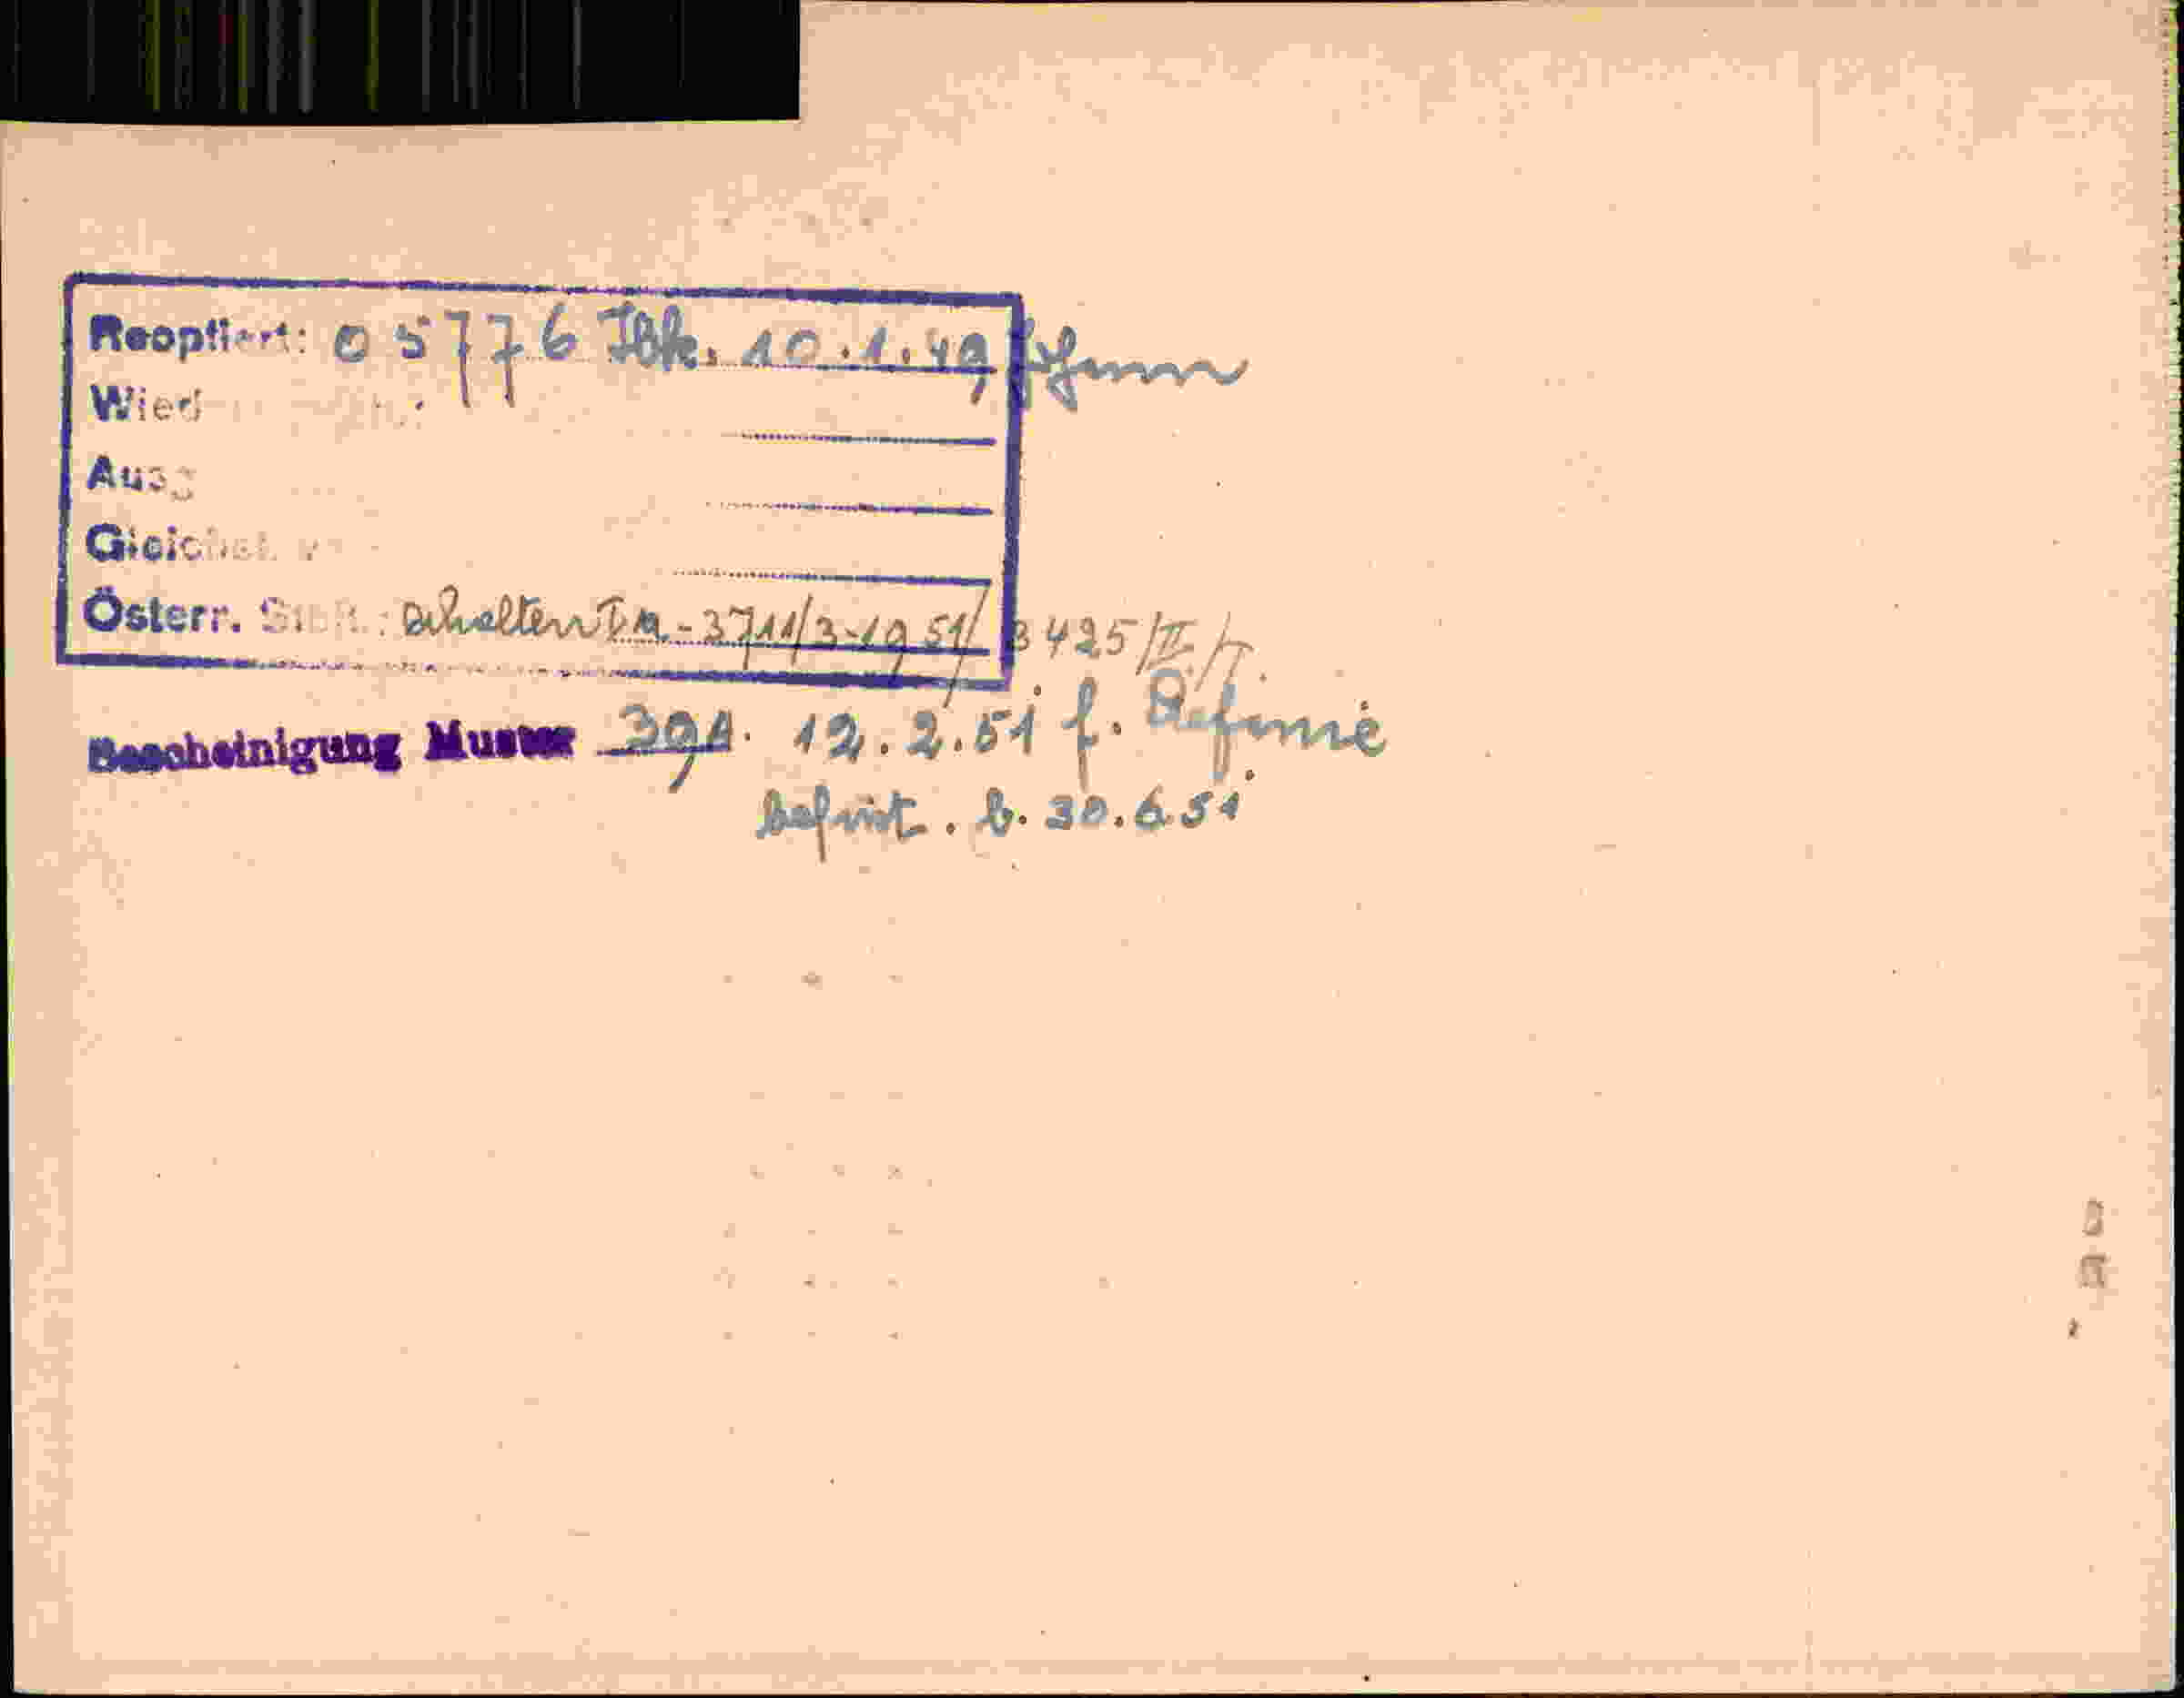 Reoptiert: 05776 Ibk. 10.1.49
Wied
Ausg
Gleichst.
Österr. St.B.: erhalten Ia-3711/3-1951/ 3425/II/T.
Bescheinigung Muster 39A. 12.2.51 f.
befrist. b. 30.6.51